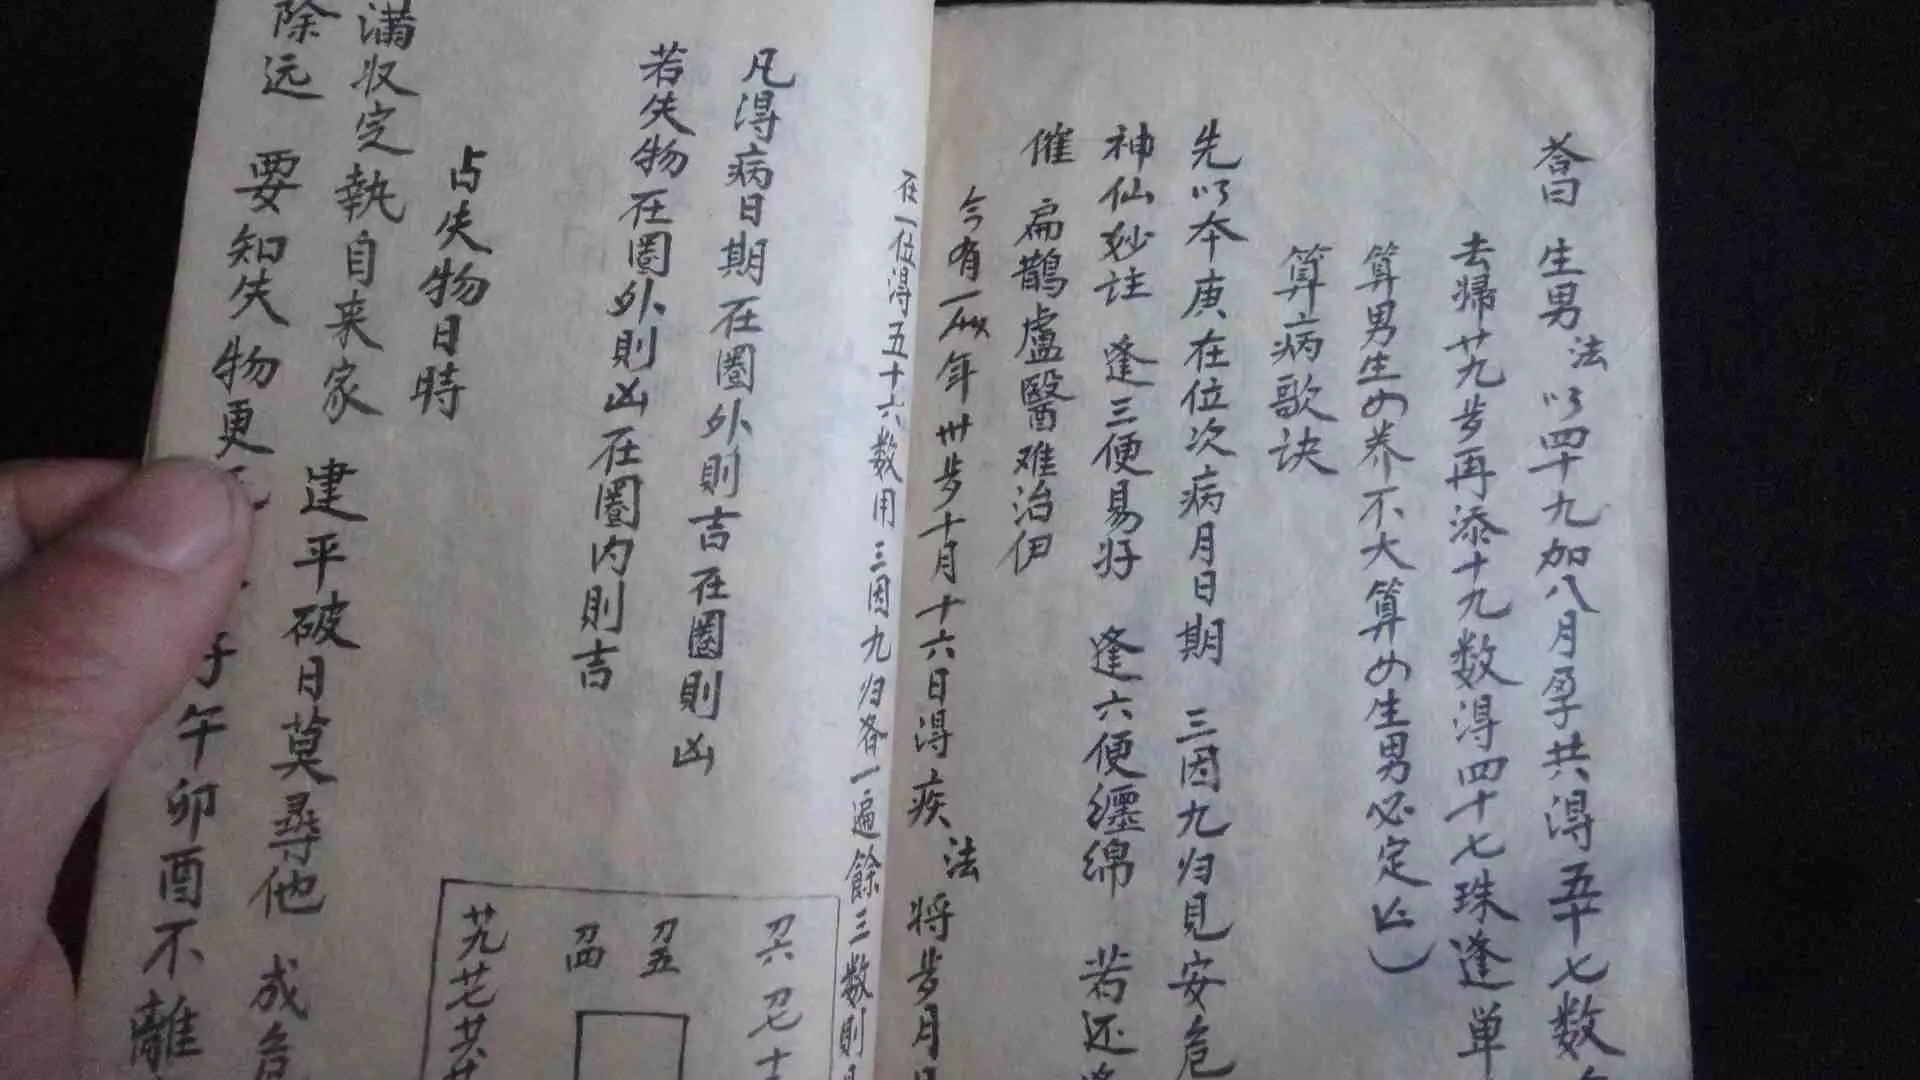 荅曰 生男 法 以四十九加八月孕共得五十七数
去歸廿九步再添十九数得四十七珠逢单
算男生女养不大算女生男必定
算病歌诀
先以本庚在位次病月日期 三因九归見安危
神仙妙诀 逢三便易好 逢六便纒绵 若还
催 扁鹊盧醫难治伊
今有一 年卅步十月十六日得疾 法 将步月
在一位得五十六数用三因九归各一遍餘三数則
凡得病日期在圈外則吉在圈則凶
若失物在圈外則凶在圈内則吉
占失物日時
满收定執自来家 建平破日莫尋他 成危
除远 要知失物更 子午卯酉不離